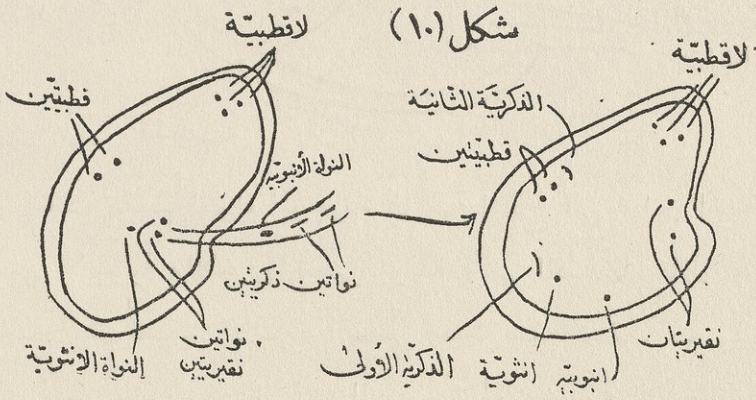 شكل (١٠)
لاقطبيّة
قطبيّتين
النواة الأنبوبيّة
نواتين ذكريّتين
نواتين
نقيريتين
النواة الانثويّة
لاقطبيّة
الذكريّة الثّانية
قطبيّتين
نقيريتان
انبوبيّة
انثويّة
الذكريّة الأولى